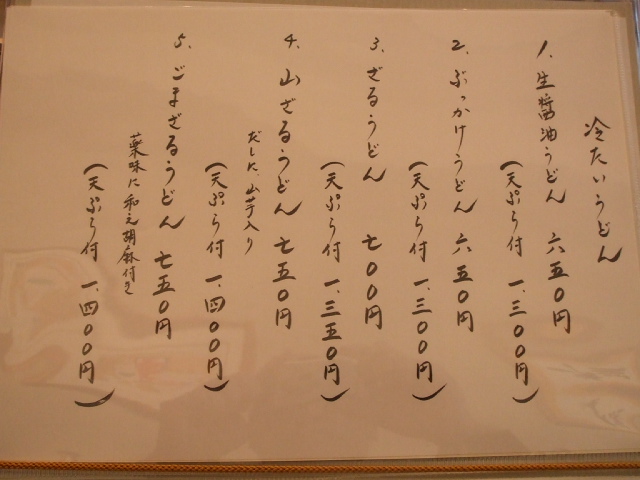 冷たいうどん
1、生醤油うどん 六五〇円
(天ぷら付 一、三〇〇円)
2、ぶっかけうどん 六五〇円
(天ぷら付 一、三〇〇円)
3、ざるうどん 七〇〇円
(天ぷら付 一、三五〇円)
4、山ざるうどん 七五〇円
だしに、山芋入り
(天ぷら付 一、四〇〇円)
5、ごまざるうどん 七五〇円
薬味に和え胡麻付き
(天ぷら付 一、四〇〇円)